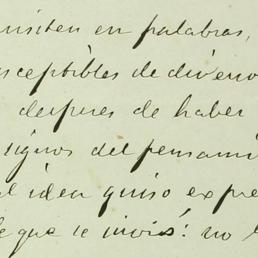 nsisten en palabras,
sceptibles de diverso
despues de haber
signos del pensami
l idea quiso expre
e que le invió: no